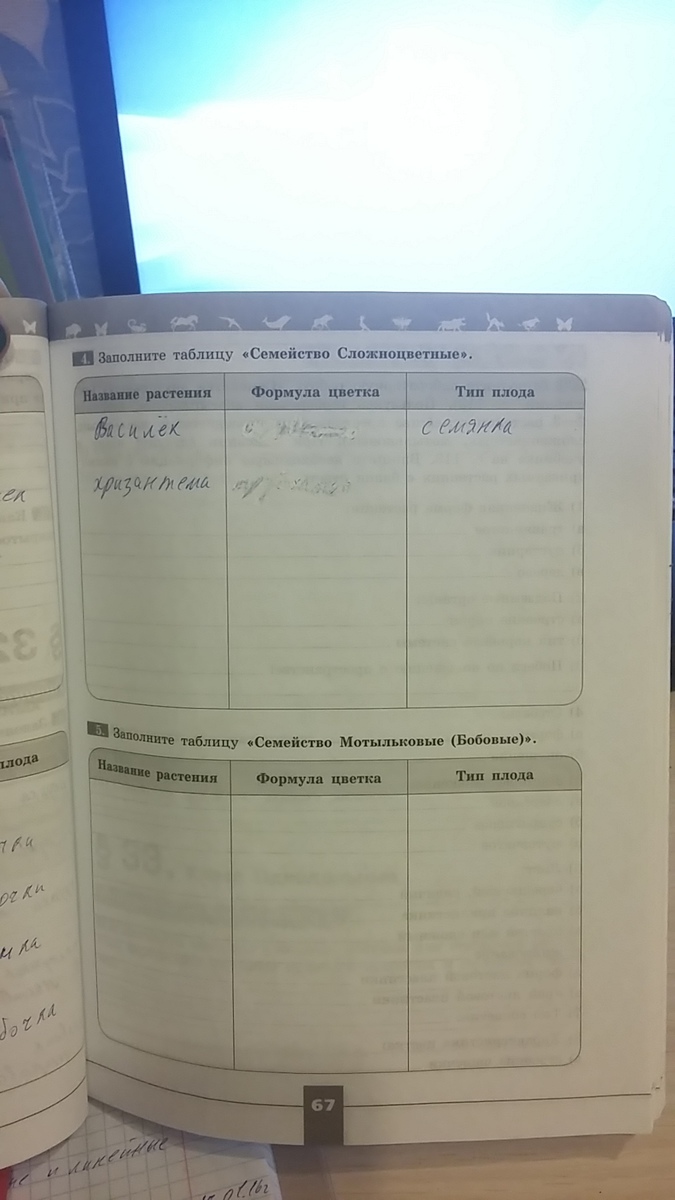 4. Заполните таблицу «Семейство Сложноцветные».
Название растения Формула цветка Тип плода
Василёк семянка
хризантема
5. Заполните таблицу «Семейство Мотыльковые (Бобовые)».
Название растения Формула цветка Тип плода
плода
67
и линейные